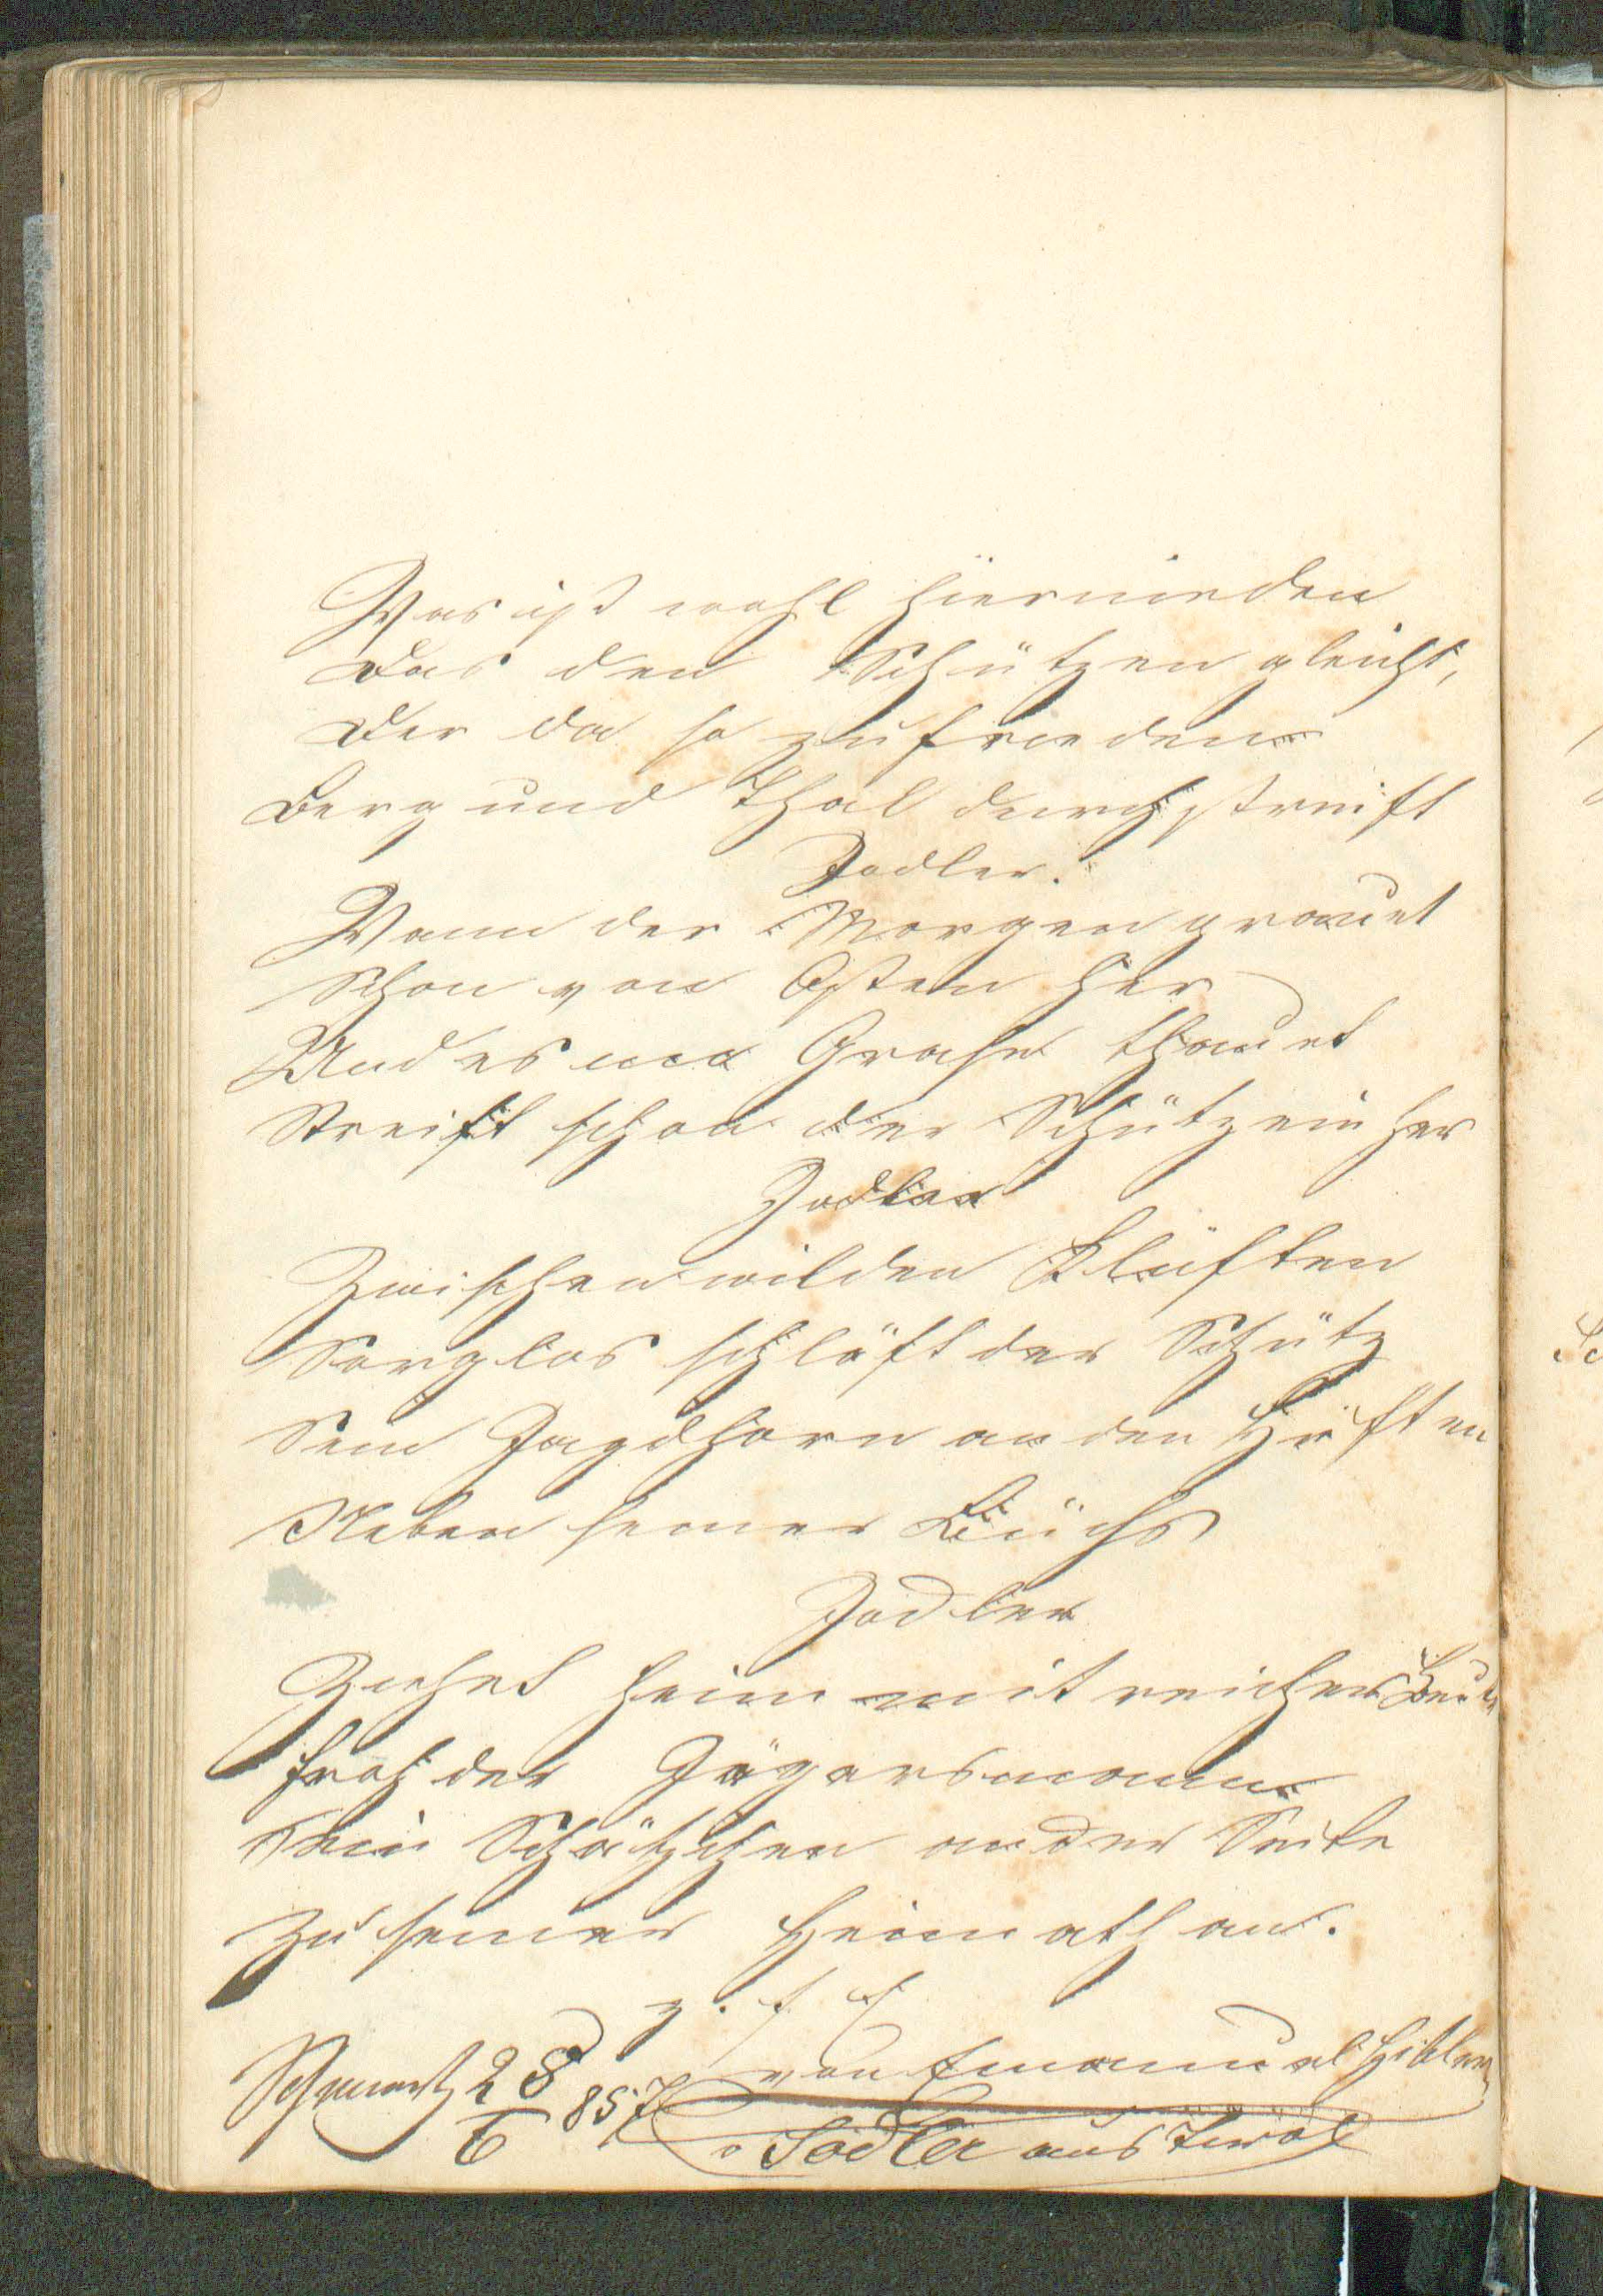 Was ist wohl hiernieden
Das dem Schützen gleicht,
Der da so zufrieden
Berg und Thal durchstreift
Jodler.
Wann der Morgen grauet
Schon von Osten her
Und es im Grase thauet
Streift schon der Schütz einher
Jodler
Zwischen wilden Klüften
Sorglos schläft der Schütz
Sein Jagdhorn an den Hüften
Neben seiner Büchs
Jodler
Ziehet heim mit reicher Beute
Froh der Jägersmann
Sein Schätzchen an der Seite
Zu seiner Heimath an.
z. f. E
28 von Emanuel Hitler
6 857 Jodler aus Tirol